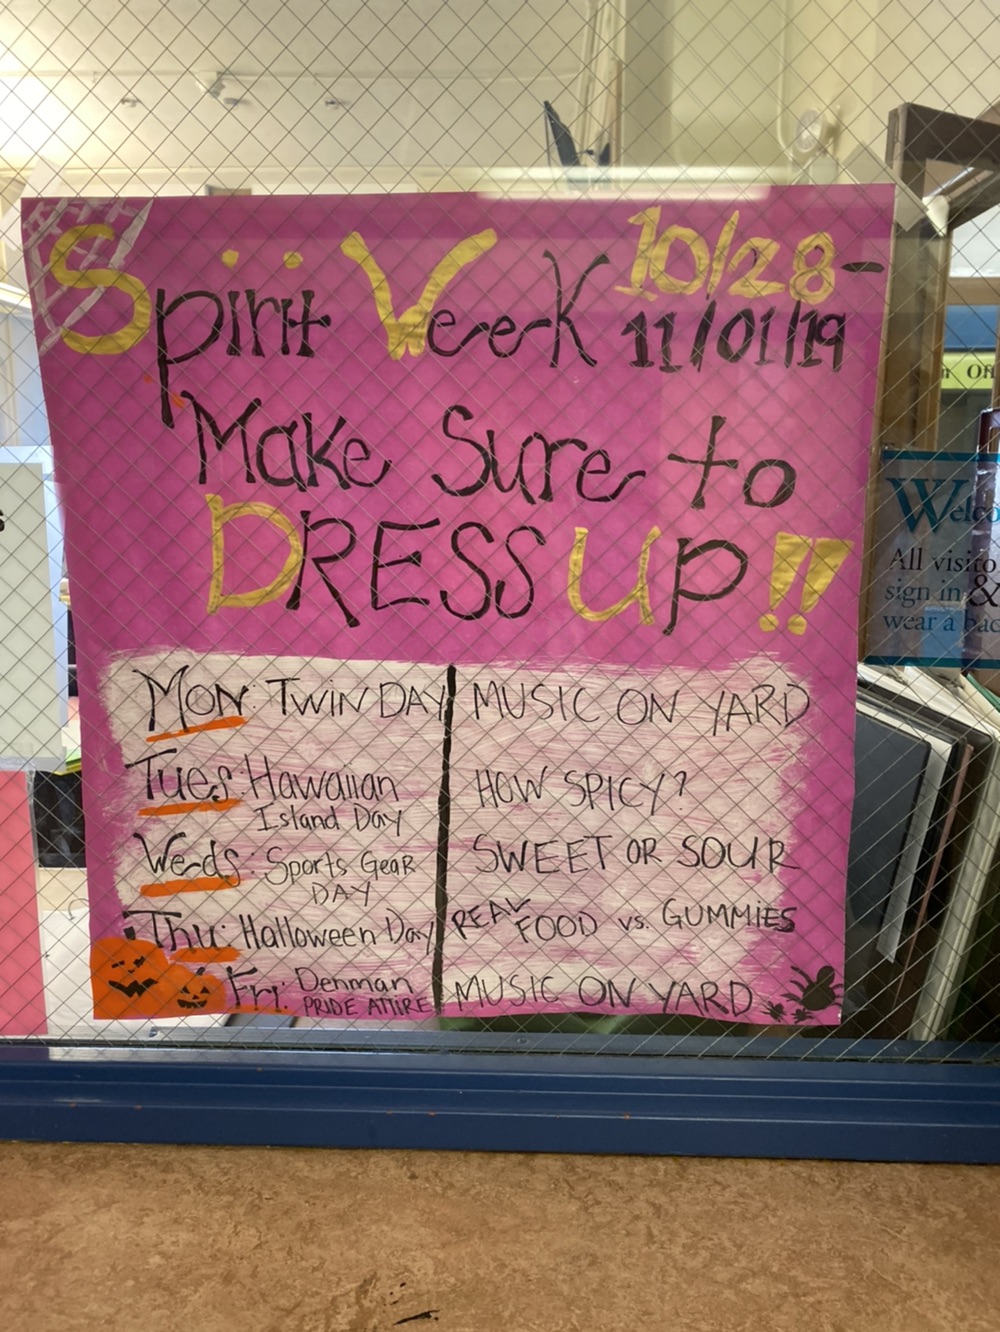 Spirit Week 10/28-
11/01/19
Make Sure to
DRESS Up!!
Mon: TWIN DAY MUSIC ON YARD
Tues: Hawaiian HOW SPICY?
Island Day
Weds: Sports GEAR SWEET OR SOUR
DAY
Thu: Halloween Day REAL FOOD vs. GUMMIES
Fri: Denman MUSIC ON YARD
PRIDE ATTIRE
All
sign in &
wear a